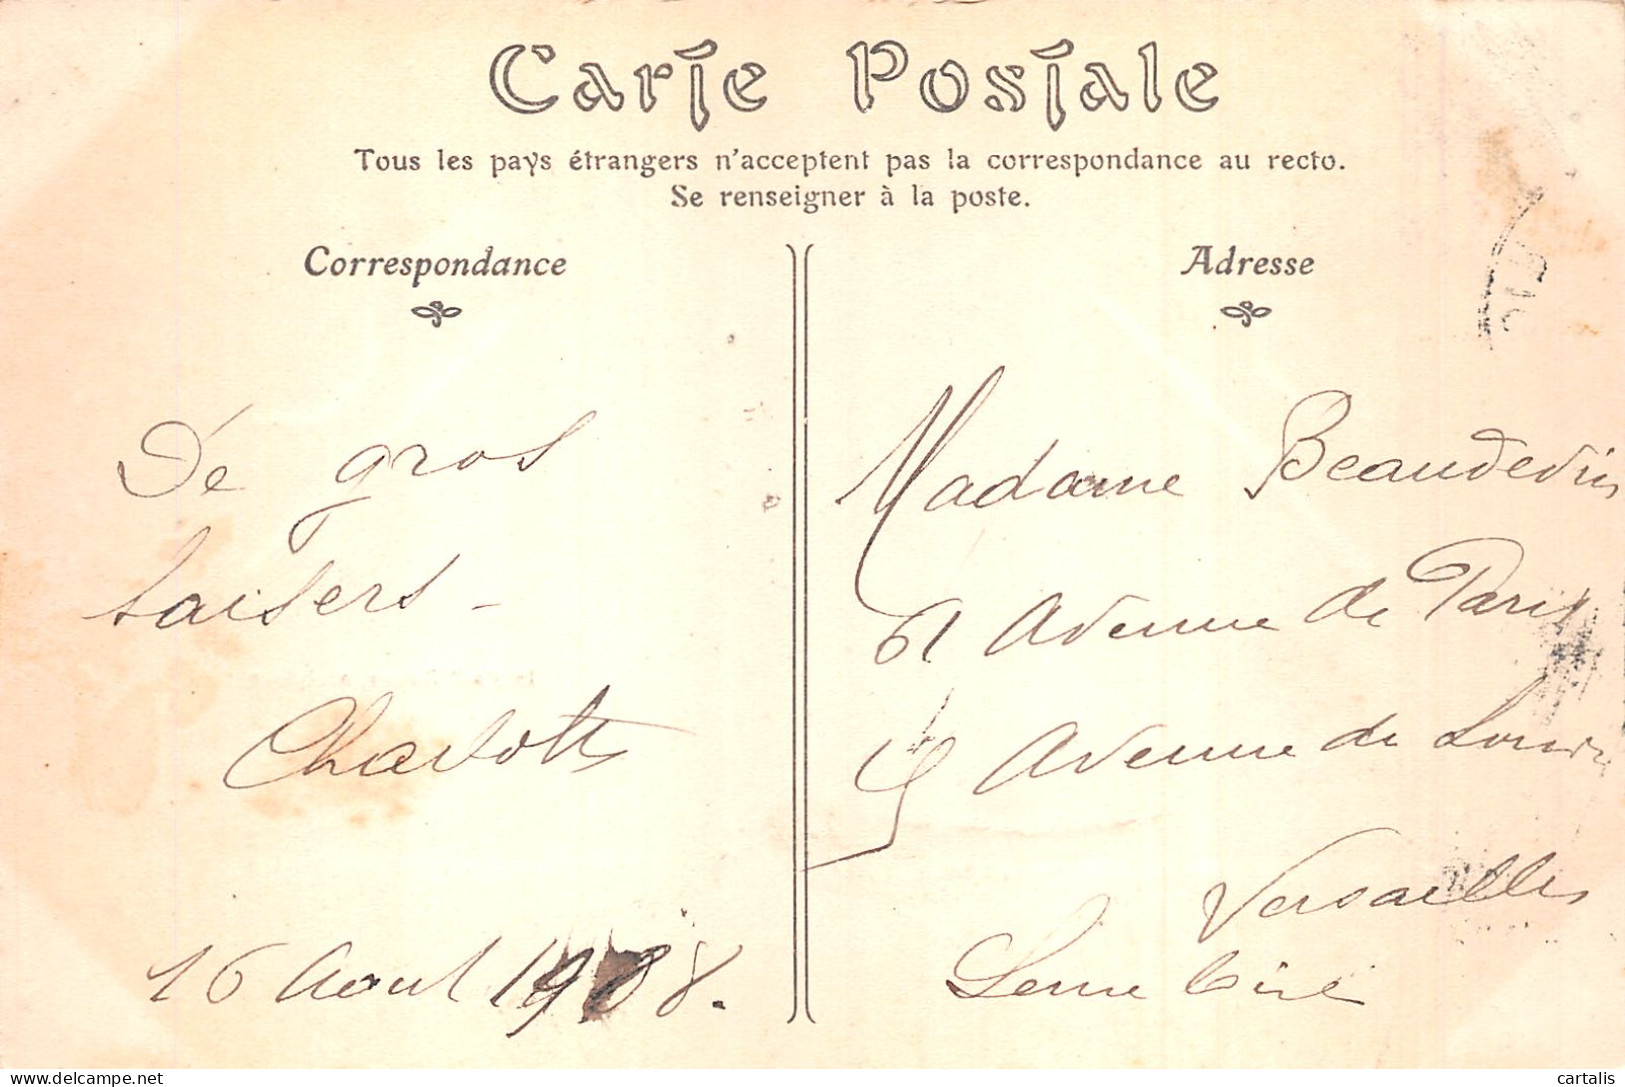 Carte Postale
Tous les pays étrangers n'acceptent pas la correspondance au recto.
Se renseigner à la poste.
Correspondance
Adresse
De gros
baisers -
Charlotte
16 Aout 1908.
Madame Beaudedin
61 Avenue de Paris
Avenue de
Versailles
delcampe.net/timeless
cartalis